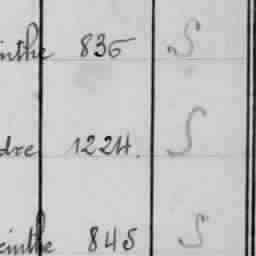 inthe 835 S
dre 1224. S
cinthe 845 S